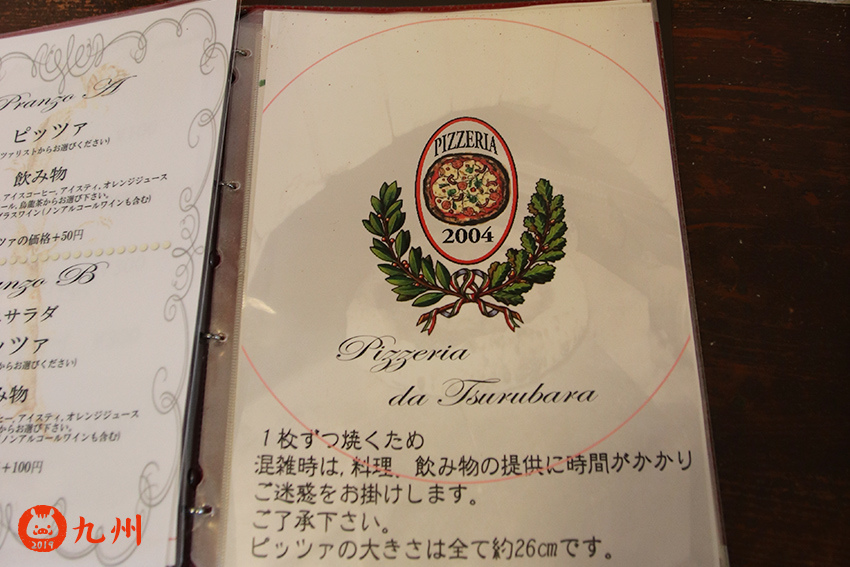 Pranzo A
ピッツァ
ツァリストからお選びください)
飲み物
アイスコーヒー、アイスティ、オレンジジュース
ール、烏龍茶からお選び下さい。
グラスワイン(ノンアルコールワインも含む)
ツァの価格+50円
anzo B
サラダ
ッツァ
からお選びください)
み物
ヒー、アイスティ、オレンジジュース
からお選び下さい。
(ノンアルコールワインも含む)
+100円
PIZZERIA
2004
Pizzeria
da Tsurubara
1枚ずつ焼くため
混雑時は、料理、飲み物の提供に時間がかかり
ご迷惑をお掛けします。
ご了承下さい。
ピッツァの大きさは全て約26cmです。
2019
九州